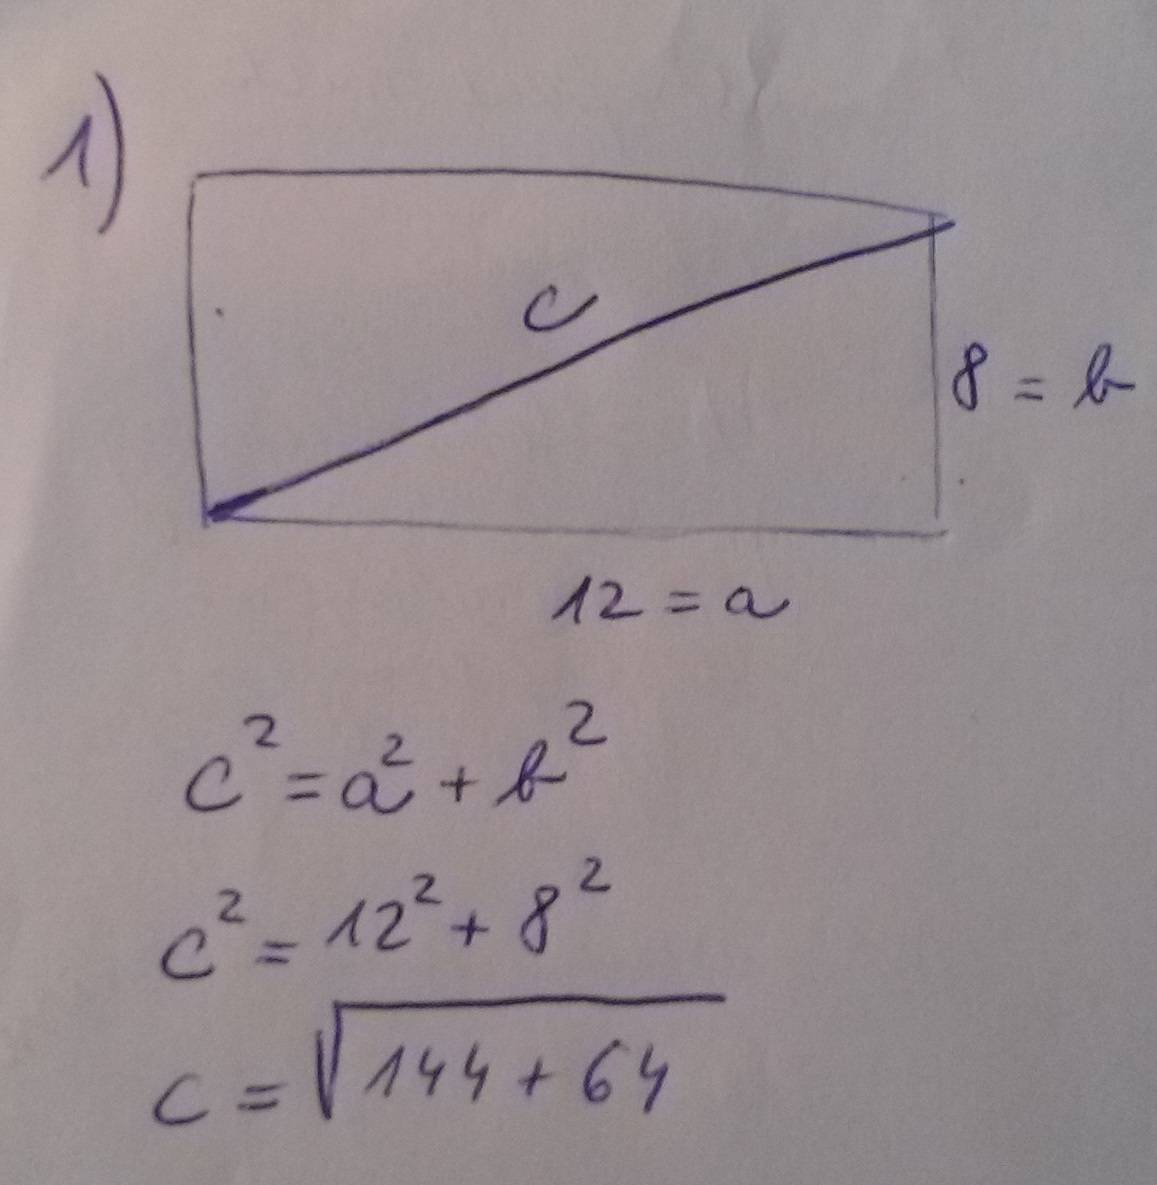 1)
c
8 = b
12 = a
c² = a² + b²
c² = 12² + 8²
c = √144 + 64